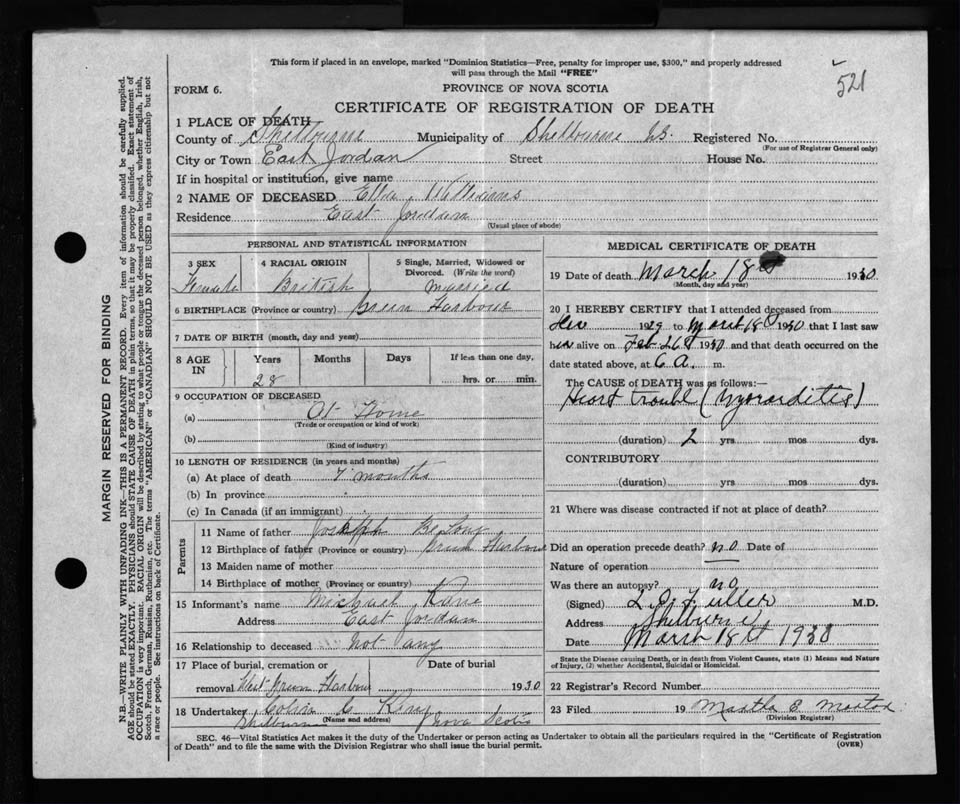 This form if placed in an envelope, marked "Dominion Statistics—Free, penalty for improper use, $300," and properly addressed
will pass through the Mail "FREE"
521
FORM 6.
PROVINCE OF NOVA SCOTIA
CERTIFICATE OF REGISTRATION OF DEATH
1 PLACE OF DEATH
County of Shelburne Municipality of Shelburne Registered No.
(For use of Registrar General only)
City or Town East Jordan Street House No.
If in hospital or institution, give name
2 NAME OF DECEASED Williams
Residence East Jordan
(Usual place of abode)
PERSONAL AND STATISTICAL INFORMATION
3 SEX 4 RACIAL ORIGIN 5 Single, Married, Widowed or Divorced. (Write the word)
Female British married
6 BIRTHPLACE (Province or country) Green Harbour
7 DATE OF BIRTH (month, day and year)
8 AGE IN Years Months Days If less than one day,
28 hrs. or min.
9 OCCUPATION OF DECEASED
(a) At Home
(Trade or occupation or kind of work)
(b)
(Kind of industry)
10 LENGTH OF RESIDENCE (in years and months)
(a) At place of death 7 months
(b) In province
(c) In Canada (if an immigrant)
Parents
11 Name of father Joseph
12 Birthplace of father (Province or country) Green Harbour
13 Maiden name of mother
14 Birthplace of mother (Province or country)
15 Informant's name Michael
Address East Jordan
16 Relationship to deceased not any
17 Place of burial, cremation or Date of burial
removal West Green Harbour 1930
18 Undertaker
(Name and address)
Shelburne Nova Scotia
MEDICAL CERTIFICATE OF DEATH
19 Date of death March 18 1930
(Month, day and year)
20 I HEREBY CERTIFY that I attended deceased from
1929 to 18 1930 that I last saw
her alive on Feb 26 1930 and that death occurred on the
date stated above, at 6 a. m.
The CAUSE OF DEATH was as follows:—
Heart trouble (Myocarditis)
(duration) 2 yrs. mos. dys.
CONTRIBUTORY
(duration) yrs. mos. dys.
21 Where was disease contracted if not at place of death?
Did an operation precede death? no Date of
Nature of operation
Was there an autopsy? no
(Signed) Fuller M.D.
Address Shelburne
Date March 18 1930
State the Disease causing Death, or in death from Violent Causes, state (1) Means and Nature
of Injury, (2) whether Accidental, Suicidal or Homicidal.
22 Registrar's Record Number
23 Filed 19 Martha E.
(Division Registrar)
SEC. 46—Vital Statistics Act makes it the duty of the Undertaker or person acting as Undertaker to obtain all the particulars required in the "Certificate of Registration
of Death" and to file the same with the Division Registrar who shall issue the burial permit.
(OVER)
MARGIN RESERVED FOR BINDING
N.B.—WRITE PLAINLY WITH UNFADING INK—THIS IS A PERMANENT RECORD. Every item of information should be carefully supplied.
AGE should be stated EXACTLY. PHYSICIANS should STATE CAUSE OF DEATH in plain terms, so that it may be properly classified. Exact statement of
OCCUPATION is very important. RACIAL ORIGIN will be described by stating to what people or tongue the deceased person belonged, whether English, Irish,
Scotch, French, German, Russian, Ruthenian, etc. The terms "AMERICAN" or "CANADIAN" SHOULD NOT BE USED as they express citizenship but not
a race or people. See instructions on back of Certificate.